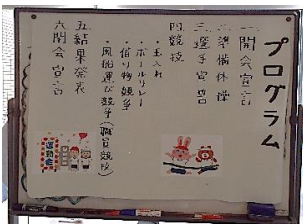 プログラム
一 開会宣言
二 準備体操
三 選手宣誓
四 競技
・玉入れ
・ボールリレー
・借り物競争
・風船運び競争(職員競技)
五 結果発表
六 閉会宣言
運動会